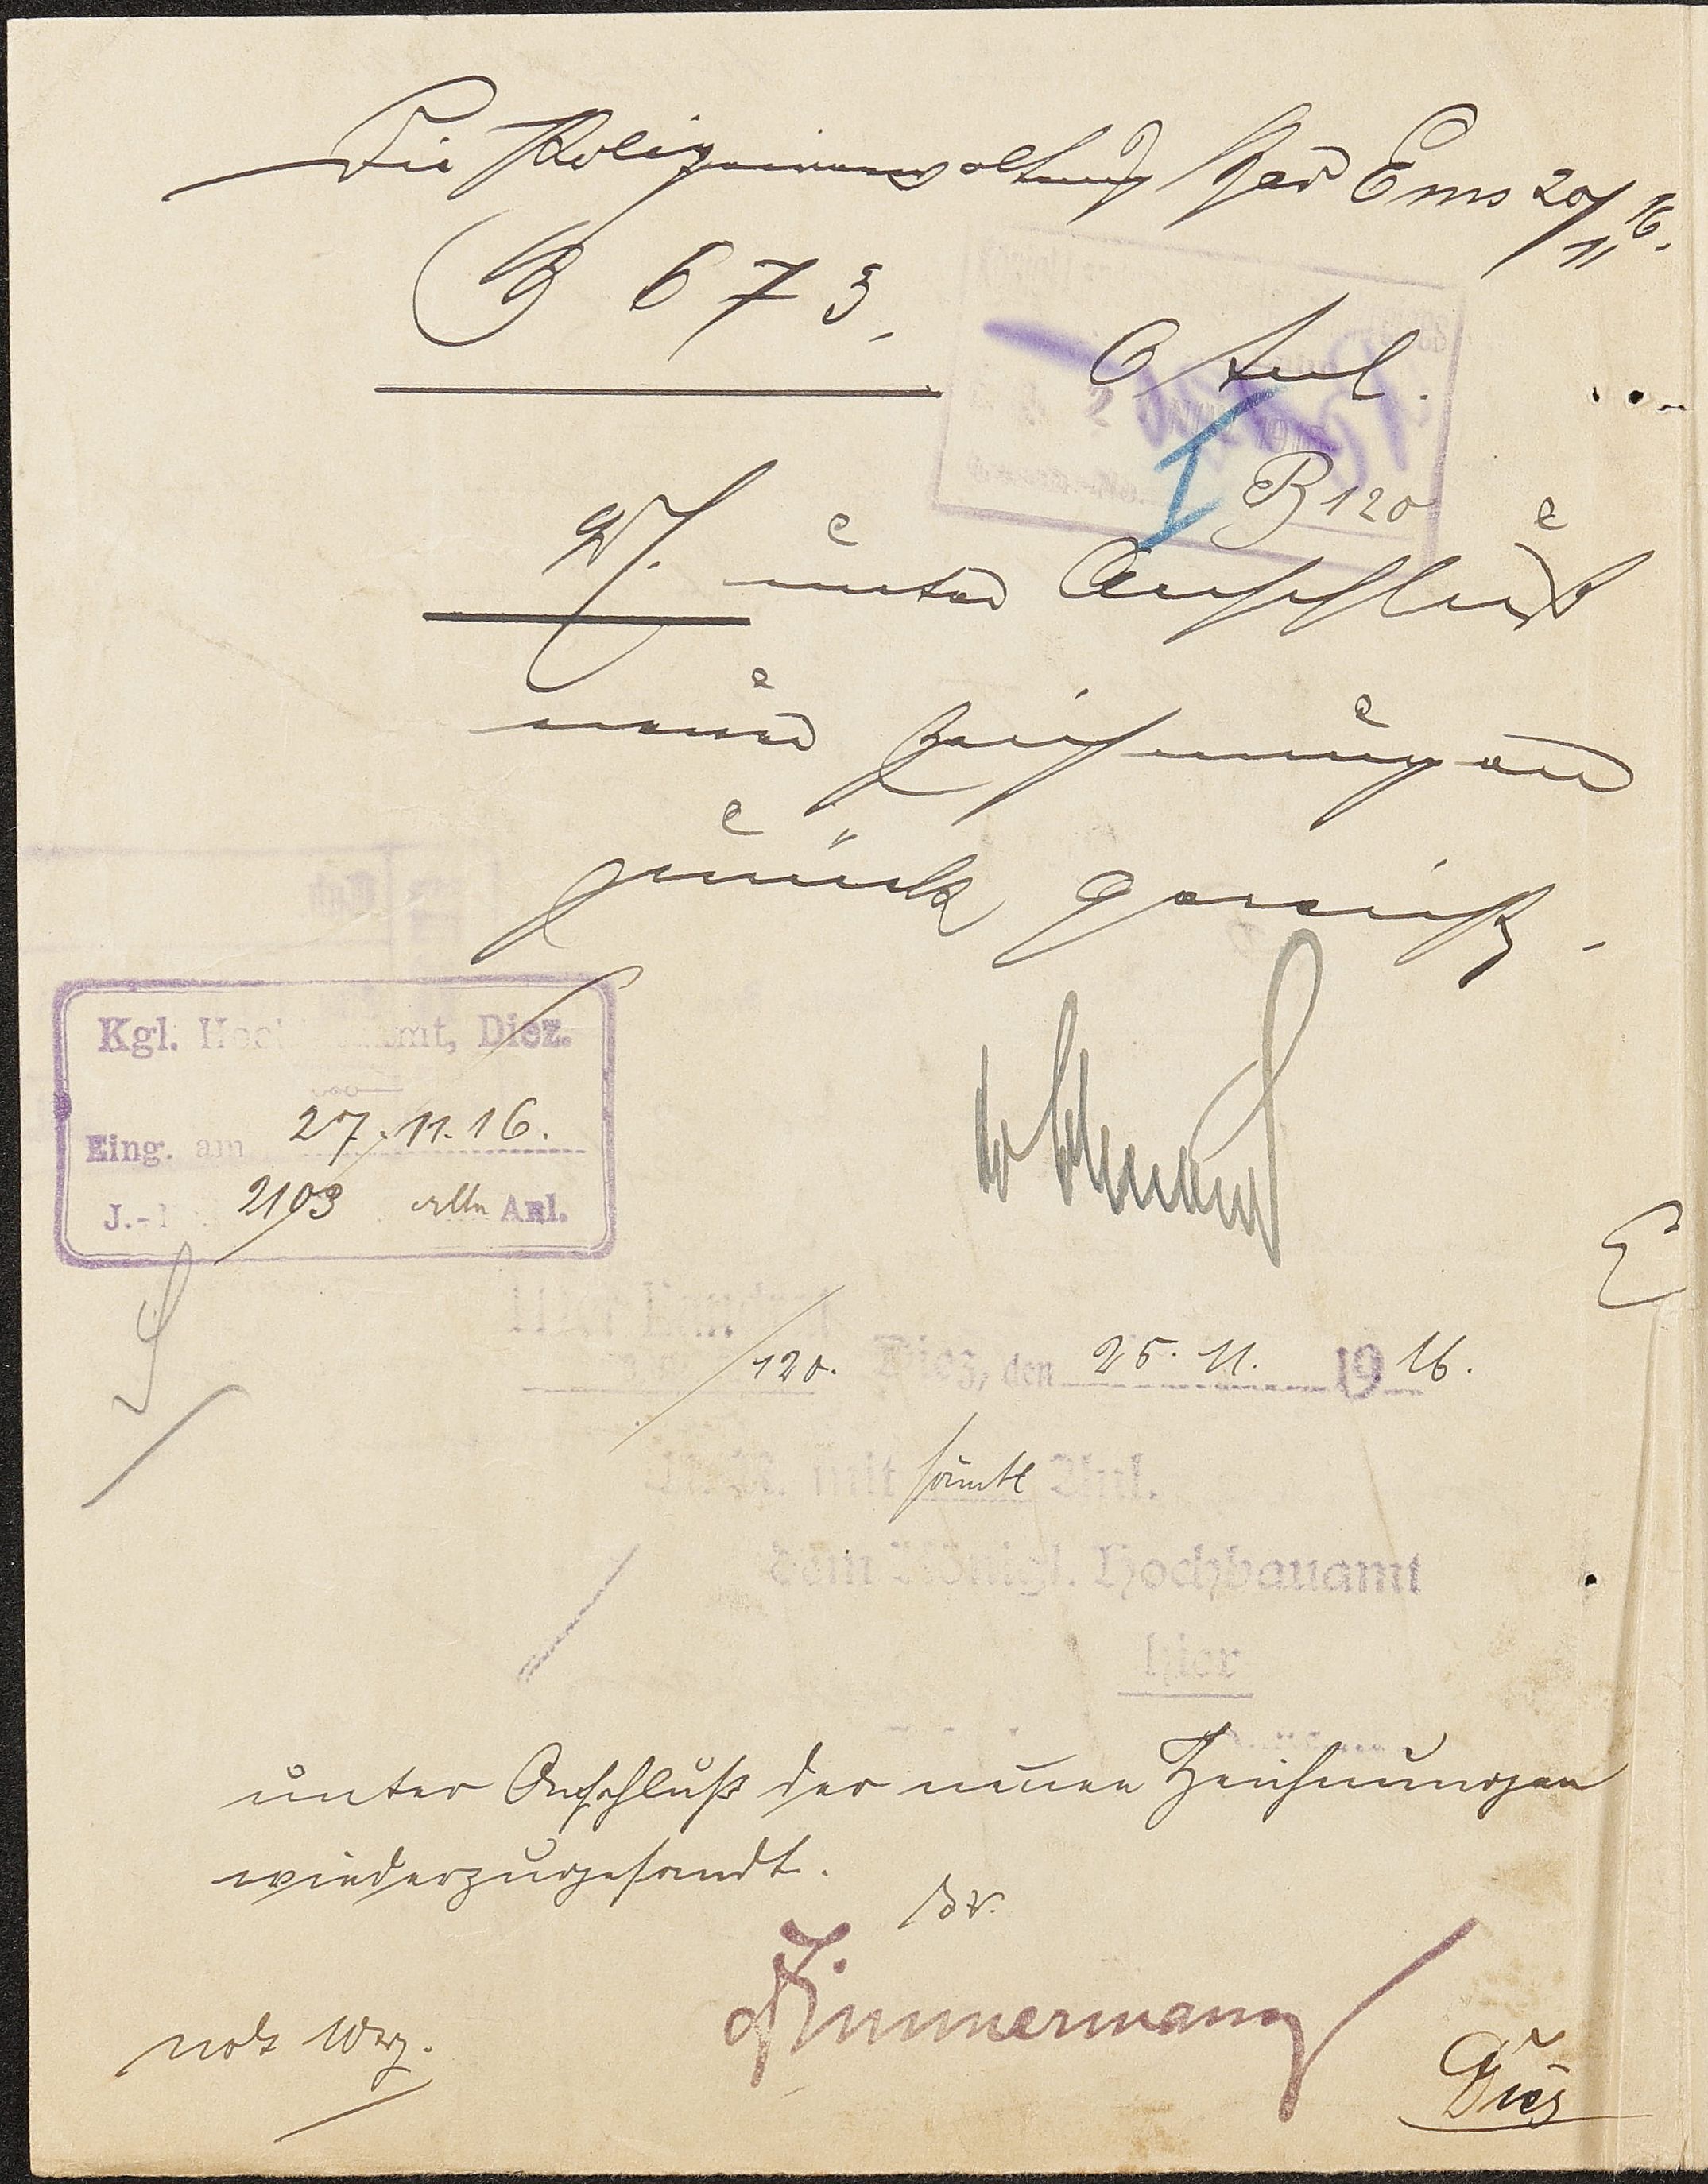 Die Polizeiverwaltung Bad Ems 20/11 16.
B 673.
6 Anl.
I B 120
W. unter Anschluß
neuer Zeichnungen
zurück gereicht.
Kgl. Hochbauamt, Diez.
Eing. am 27.11.16.
J.-Nr. 2103 Anl.
Der Landrat
120. Diez, den 25.11. 1916.
U. R. mit sämtl Anl.
dem Königl. Hochbauamt
hier
unter Anschluß der neuen Zeichnungen
wiederzugesandt.
Zimmermann
not.